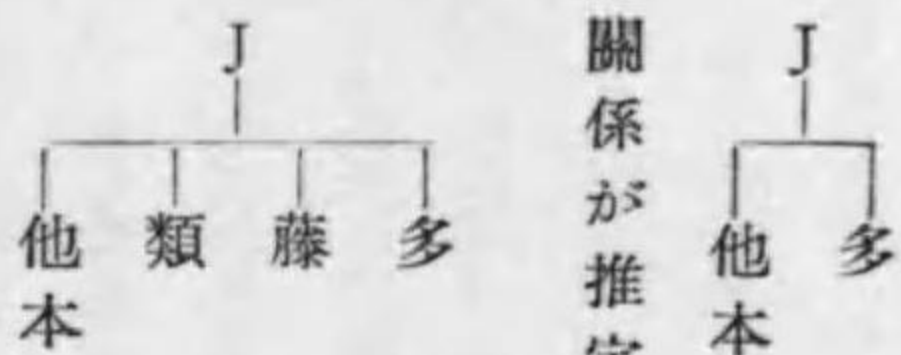 J
多
他本
關係が推定
J
多
藤
類
他本